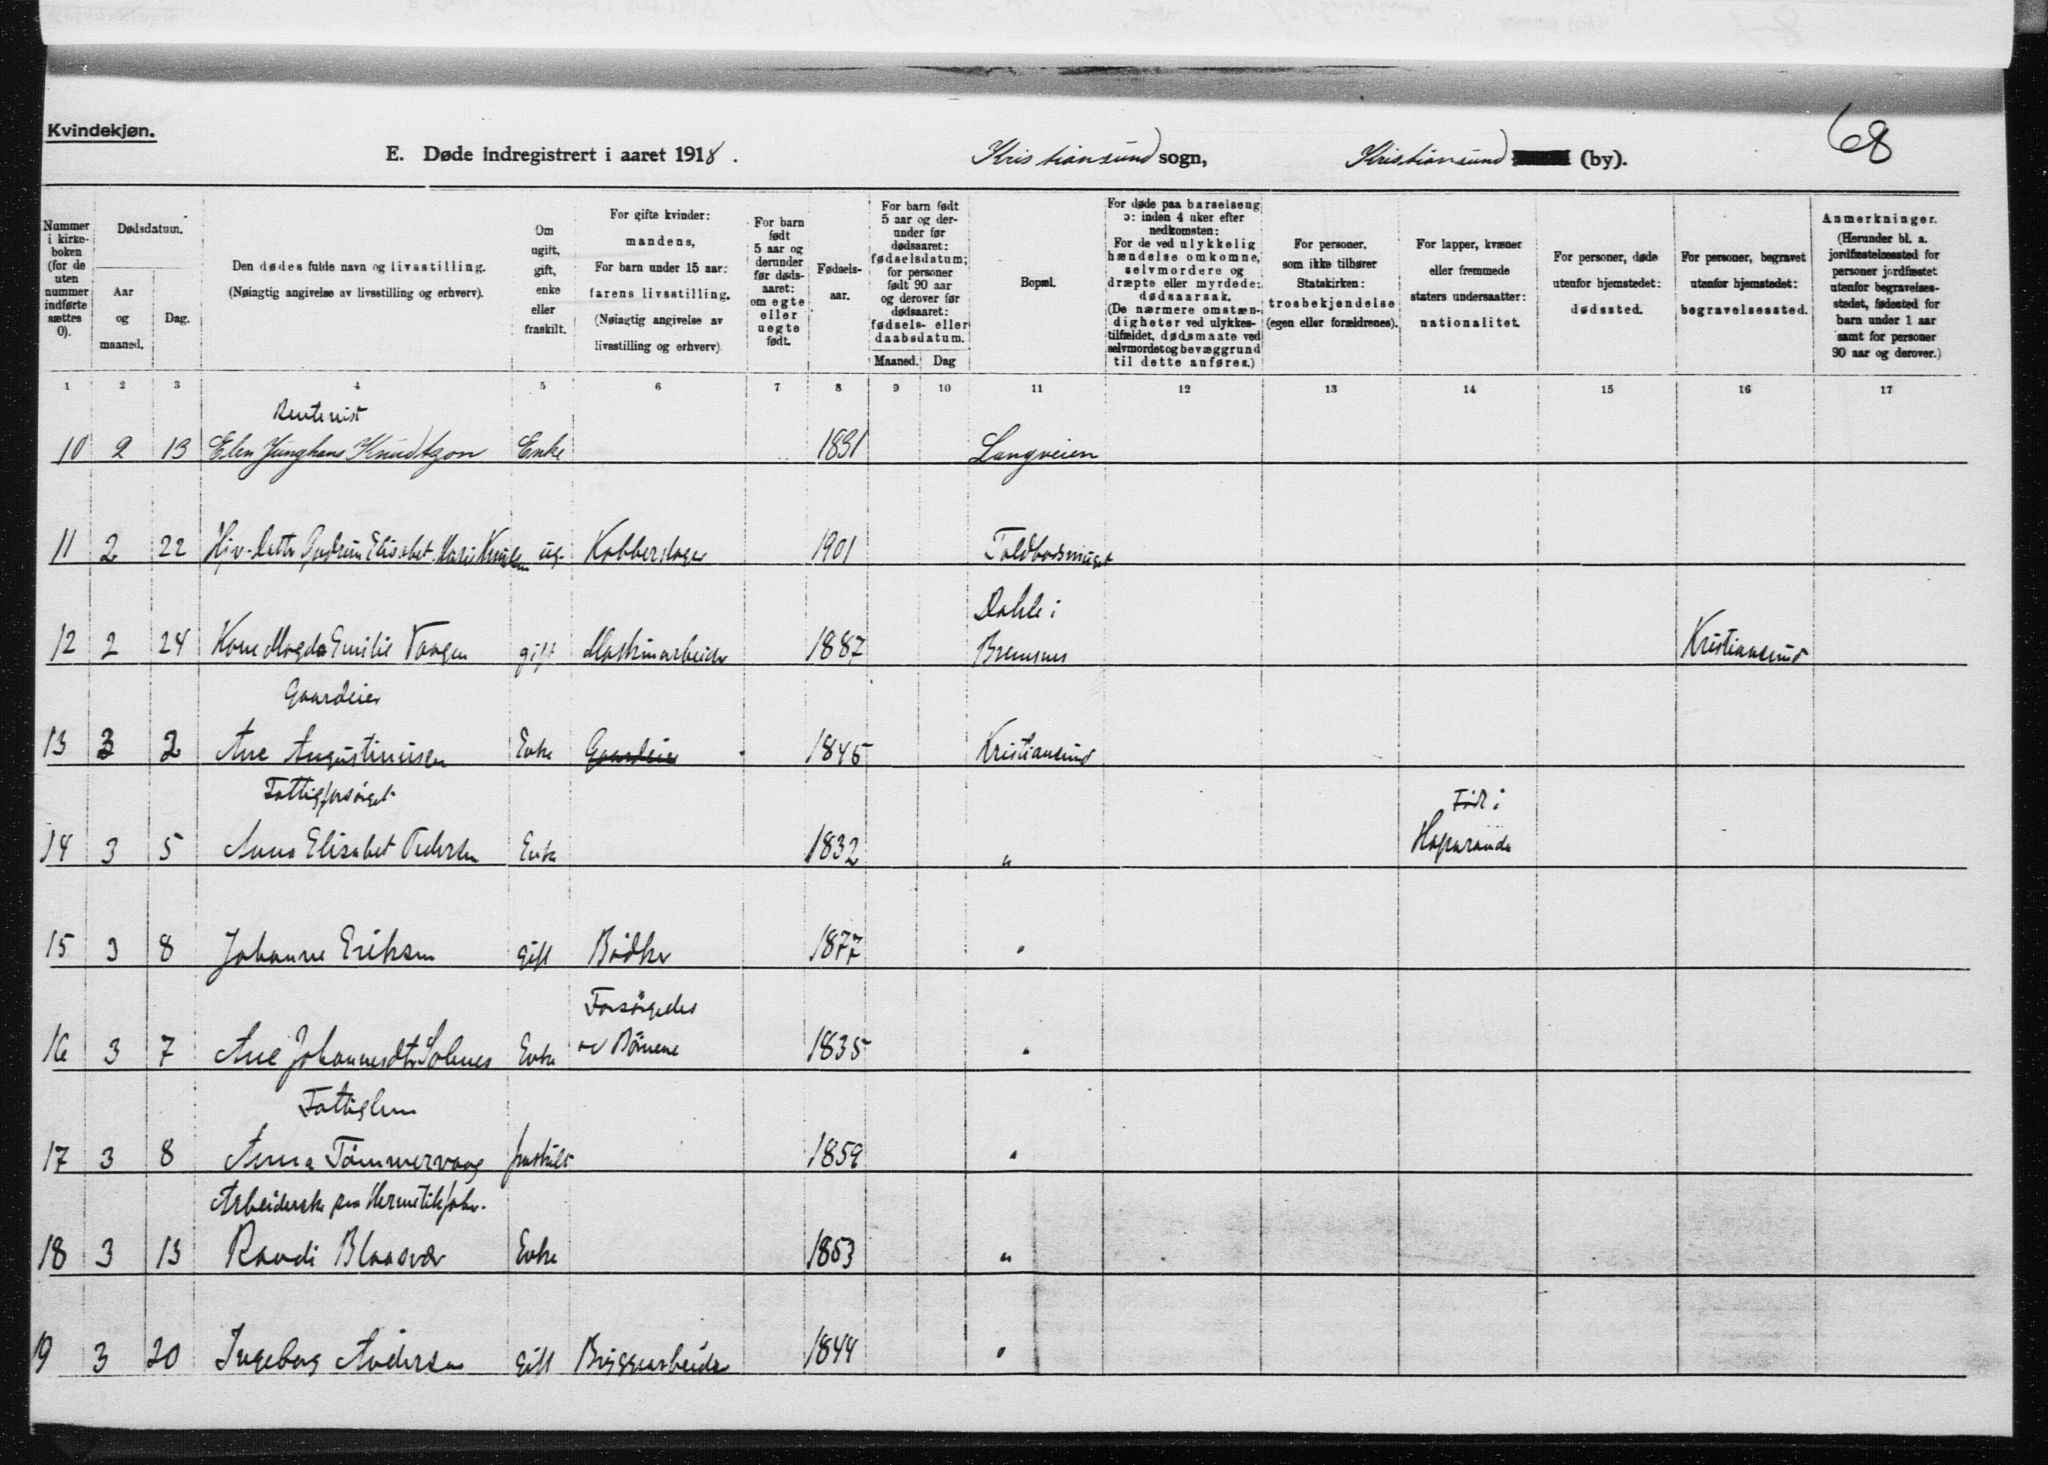 68
Kvindekjøn.
E. Døde indregistrert i aaret 1918. Kristiansund sogn, Kristiansund (by).
Nummer i kirkeboken (for de uten nummer indførte sættes 0).
Dødsdatum.
Aar og maaned.
Dag.
Den dødes fulde navn og livsstilling.
(Nøiagtig angivelse av livsstilling og erhverv).
Om ugift, gift, enke eller fraskilt.
For gifte kvinder: mandens,
For barn under 15 aar: farens livsstilling.
(Nøiagtig angivelse av livsstilling og erhverv).
For barn født 5 aar og derunder før dødsaaret: om egte eller uegte født.
Fødselsaar.
For barn født 5 aar og derunder før dødsaaret: fødselsdatum; for personer født 90 aar og derover før dødsaaret: fødsels- eller daabsdatum.
Maaned. Dag
Bopæl.
For døde paa barselseng ɔ: inden 4 uker efter nedkomsten:
For de ved ulykkelig hændelse omkomne, selvmordere og dræpte eller myrdede: dødsaarsak.
(De nærmere omstændigheter ved ulykkestilfældet, dødsmaate ved selvmordet og bevæggrund til dette anføres.)
For personer, som ikke tilhører Statskirken: trosbekjendelse (egen eller forældrenes).
For lapper, kvæner eller fremmede staters undersaatter: nationalitet.
For personer, døde utenfor hjemstedet: dødssted.
For personer, begravet utenfor hjemstedet: begravelsessted.
Anmerkninger.
(Herunder bl. a. jordfæstelsessted for personer jordfæstet utenfor begravelsesstedet, fødested for barn under 1 aar samt for personer 90 aar og derover.)
1 2 3 4 5 6 7 8 9 10 11 12 13 14 15 16 17
Rentenist
10 2 13 Elen Junghans Knudtzon Enke 1831 Langveien
11 2 22 Hjv. datter Gudrun Elisabet Marie Knudsen ug. Kobberslager 1901 Toldbodsmuget
Dahle i
12 2 24 Kone Magda Emilie Vaagen gift Maskinarbeider 1887 Bremsnes Kristiansund
Gaardeier
13 3 2 Ane Augustinusen Enke Gaardeier 1845 Kristiansund
Fattigforsørget Født i
14 3 5 Anna Elisabet Pedersen Enke 1832 " Haparanda
15 3 8 Johanne Eriksen gift Bødker 1877 "
Forsørgedes
16 3 7 Ane Johannesdtr Solnes Enke av Børnene 1835 "
Fattiglem
17 3 8 Anna Tømmervaag fraskilt 1859 "
Arbeiderske paa Hermetikfabr.
18 3 13 Randi Blaasvær Enke 1853 "
19 3 20 Ingeborg Andersen gift Bryggearbeider 1844 "